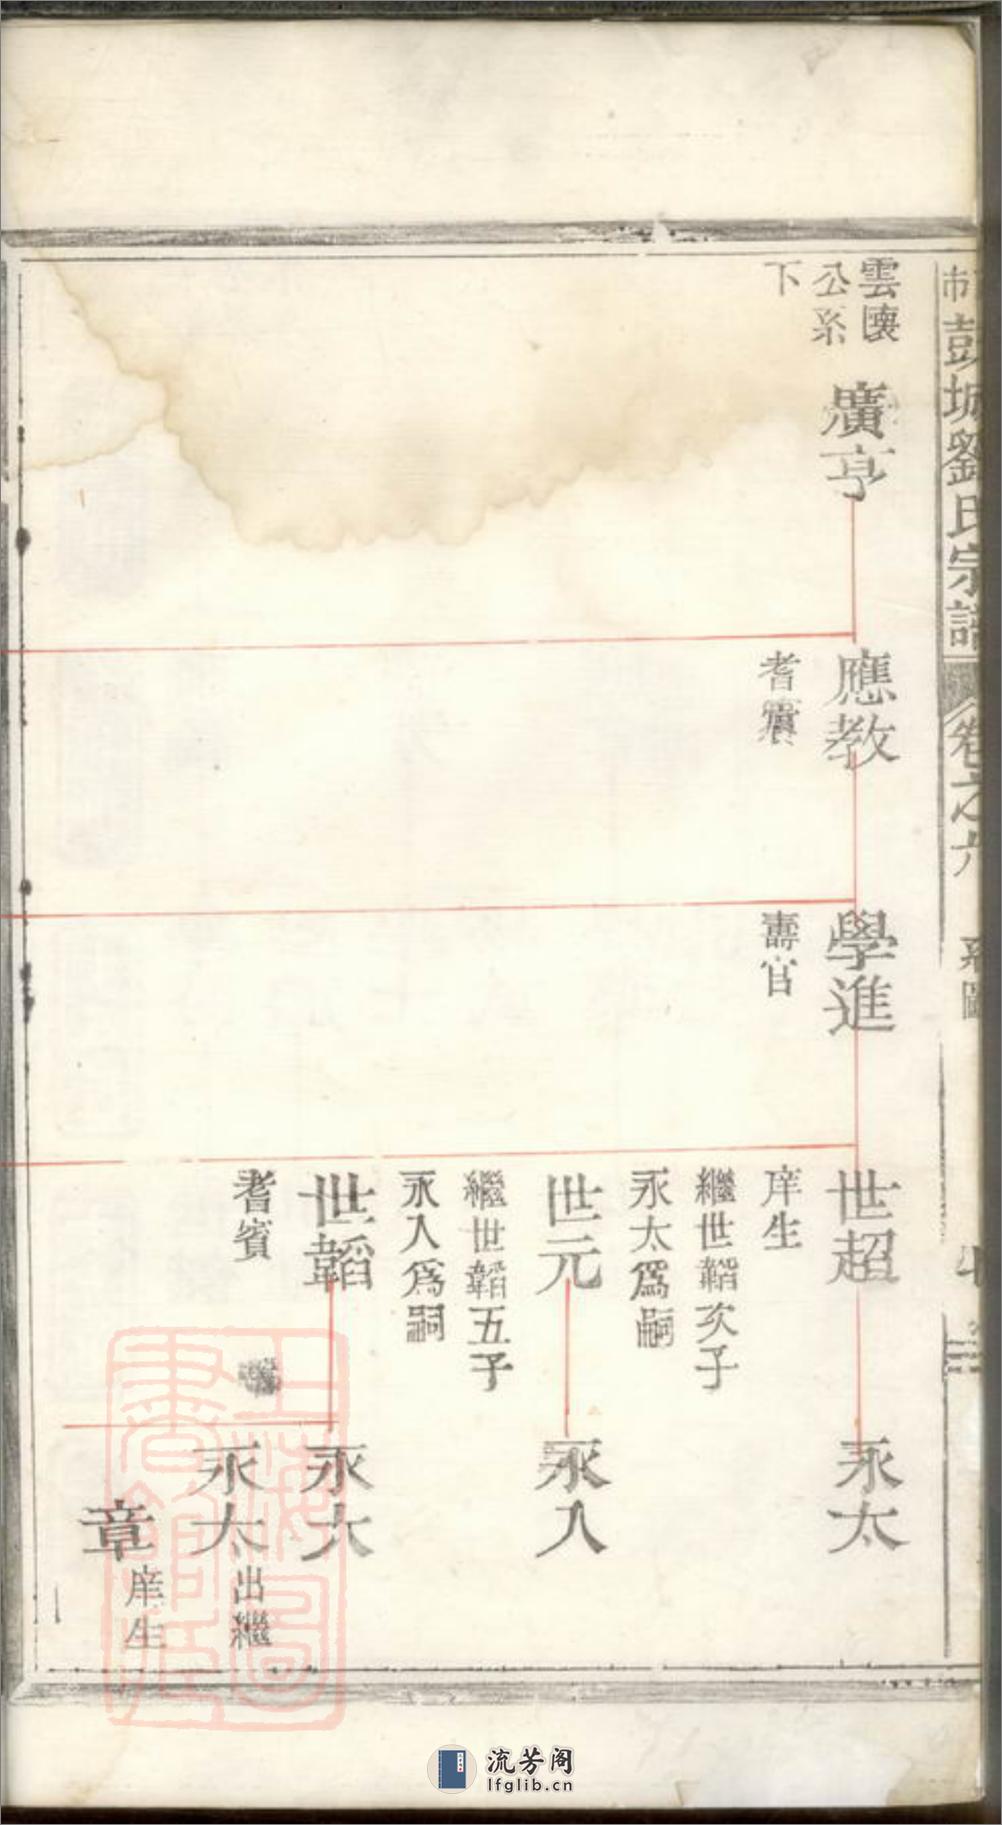 彭城劉氏宗譜
卷之六
系圖
雲懐
公系
下
廣亨
應教
耆賓
學進
壽官
世超
庠生
繼世韜次子
永太爲嗣
世元
繼世韜五子
永人爲嗣
世韜
耆賓
永太
永人
永大
永太
出繼
章
庠生
上海圖
書館藏
流芳阁
lfglib.cn